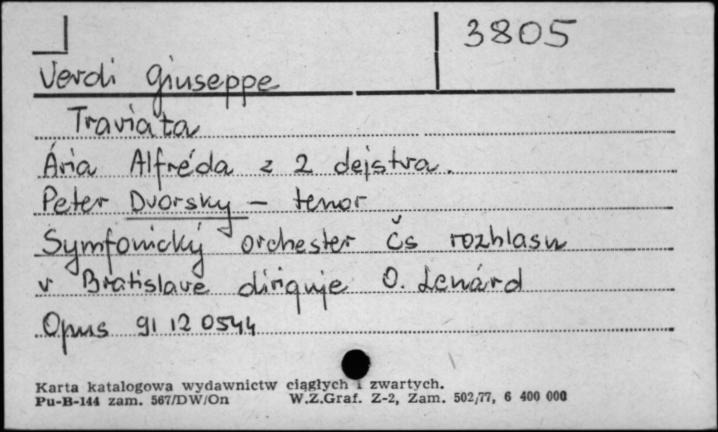 3805
Verdi Giuseppe
Traviata
Ária Alfréda z 2 dejstva.
Peter Dvorsky – tenor
Symfonický orchester Čs rozhlasu
v Bratislave diriguje O. Lenárd
Opus 91 12 0544
Karta katalogowa wydawnictw ciągłych i zwartych.
Pu-B-144 zam. 567/DW/On W.Z.Graf. Z-2, Zam. 502/77, 6 400 000